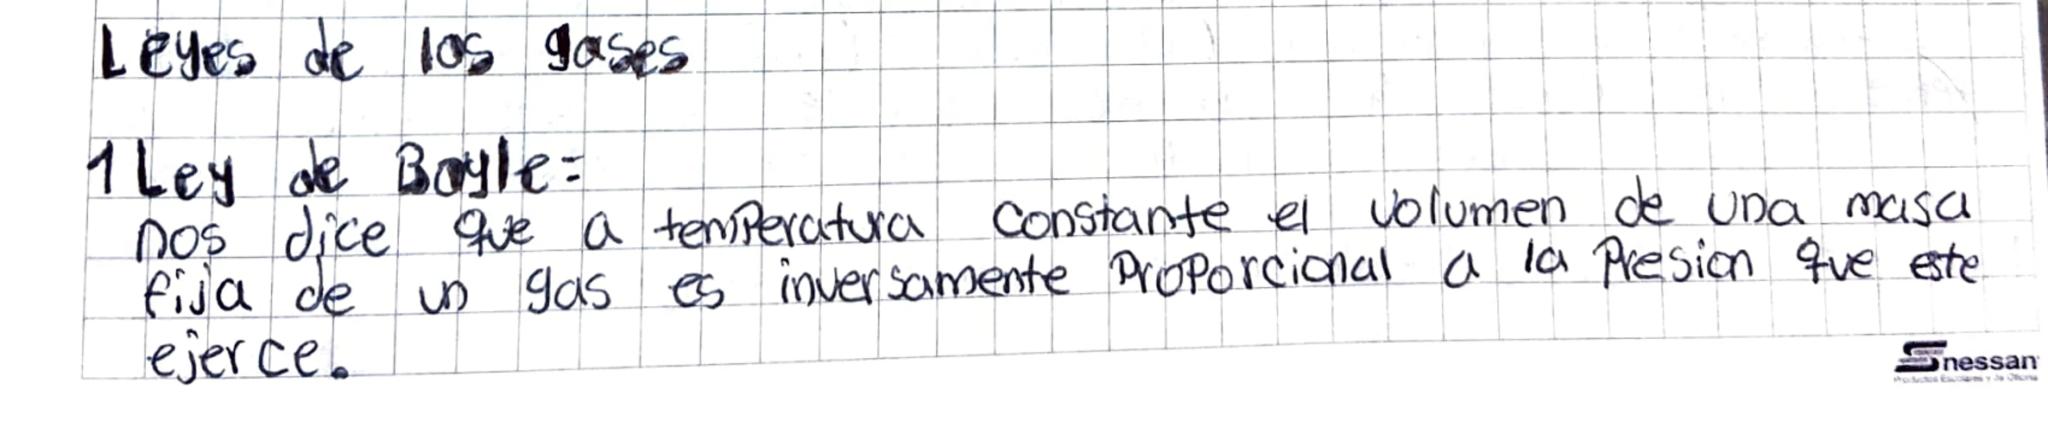 Leyes de los gases
1 Ley de Boyle=
nos dice que a temperatura constante el volumen de una masa
fija de un gas es inversamente proporcional a la presion que este
ejerce.
Snessan
Productos Escolares y de Oficina